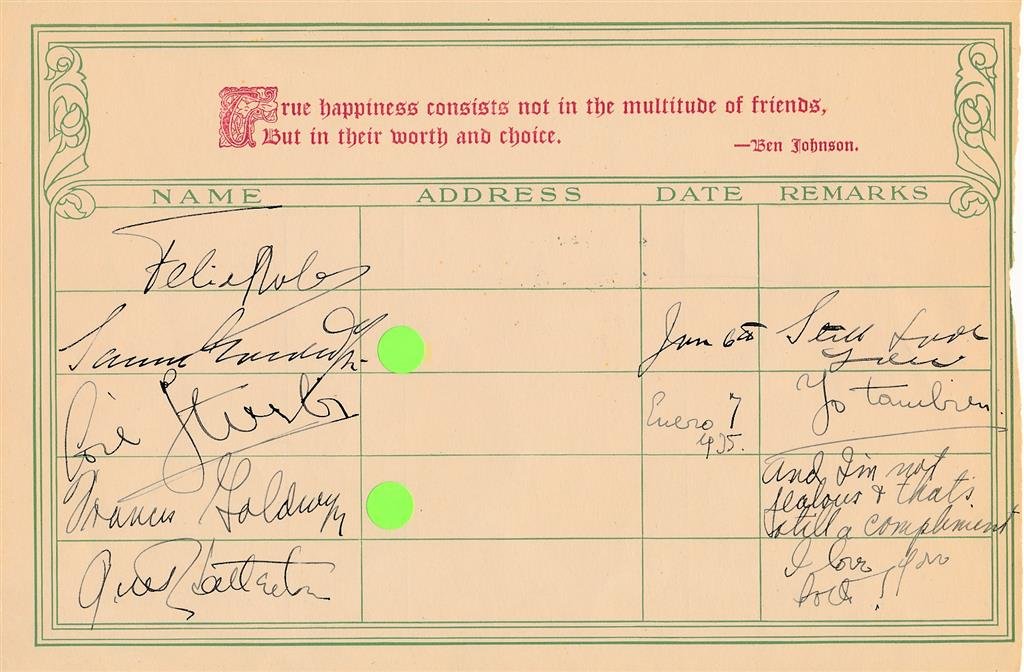 True happiness consists not in the multitude of friends,
But in their worth and choice.
—Ben Johnson.
NAME ADDRESS DATE REMARKS
Jan 6th Still Love
You
José Iturbi Enero 7 Yo tambien
1935.
Frances Goldwyn and I'm not
jealous & that's
still a compliment
I love you
both!